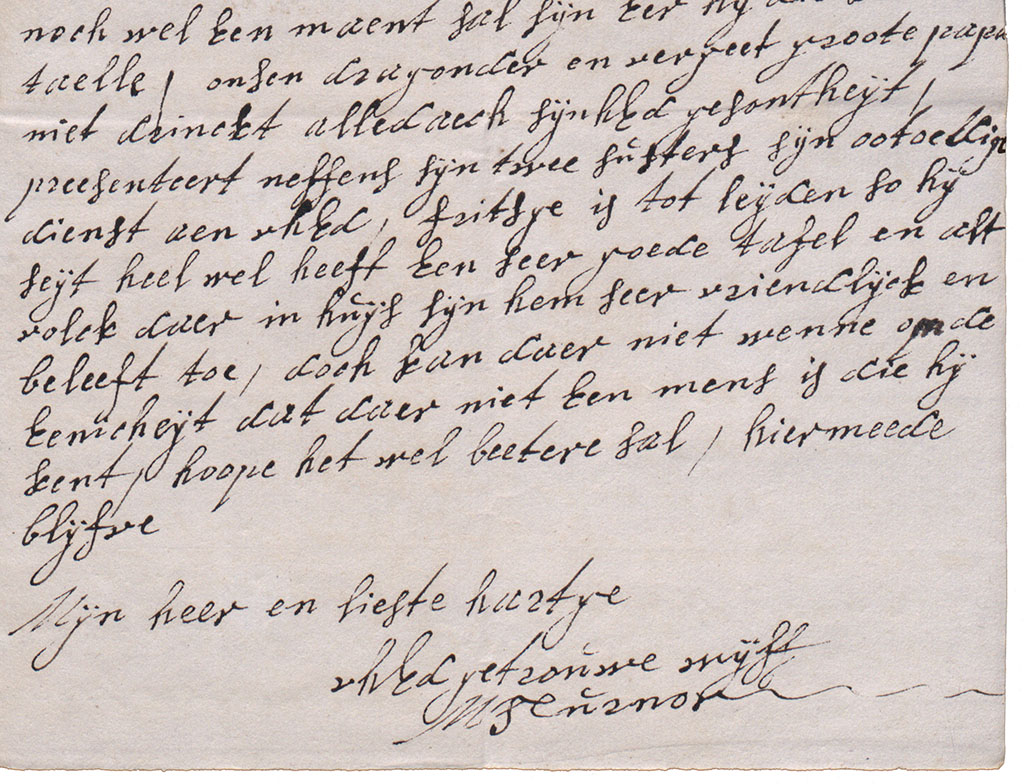 noch wel een maent sal sijn eer hij
taelle / onsen dragonder en vergeet groote papa
niet drinckt alledaech sijnhEd gesontheijt /
preesenteert neffens sijn twee susters sijn ootoedige
dienst aen uhEd / fritsge is tot leijden so hij
seijt heel wel heeft een seer goede tafel en alt
volck daer in huijs sijn hem seer vriendlijck en
beleeft toe / doch kan daer niet wenne om de
eenicheijt dat daer niet een mens is die hij
kent / hoope het wel beetere sal / hiermeede
blijfve
Mijn heer en lieste hartge
uhEd getrouwe wijff